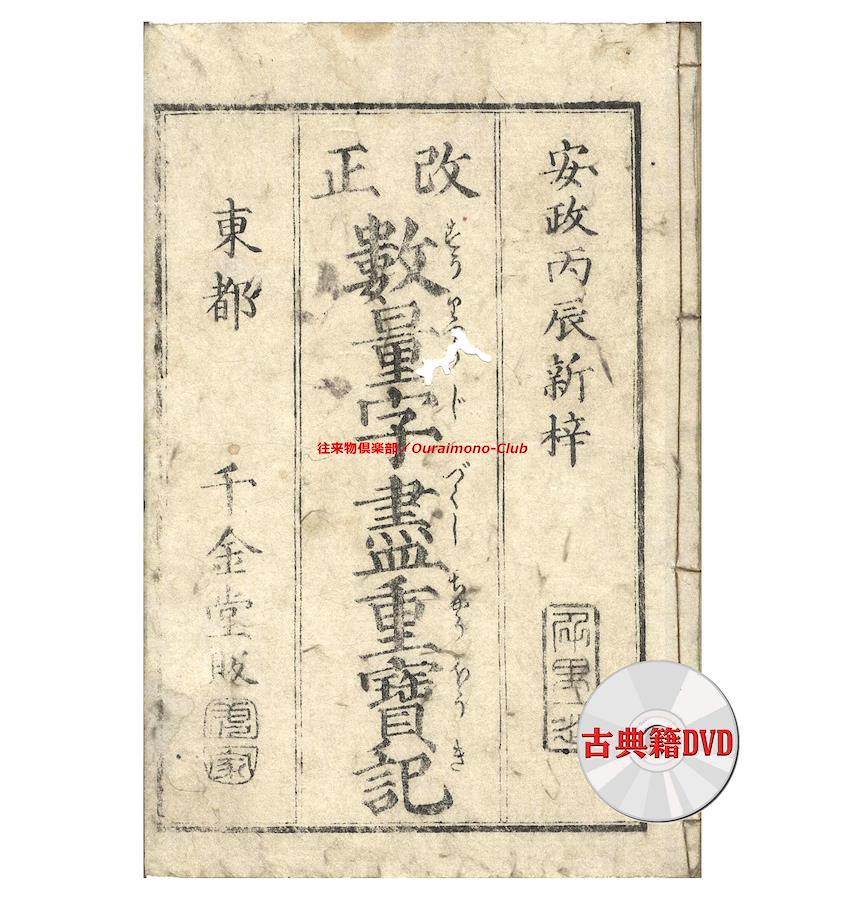 安政丙辰新梓
改正
數量字盡重寳記
づくし
ちやうほうき
東都
千金堂販
往来物倶楽部／Ouraimono-Club
古典籍DVD